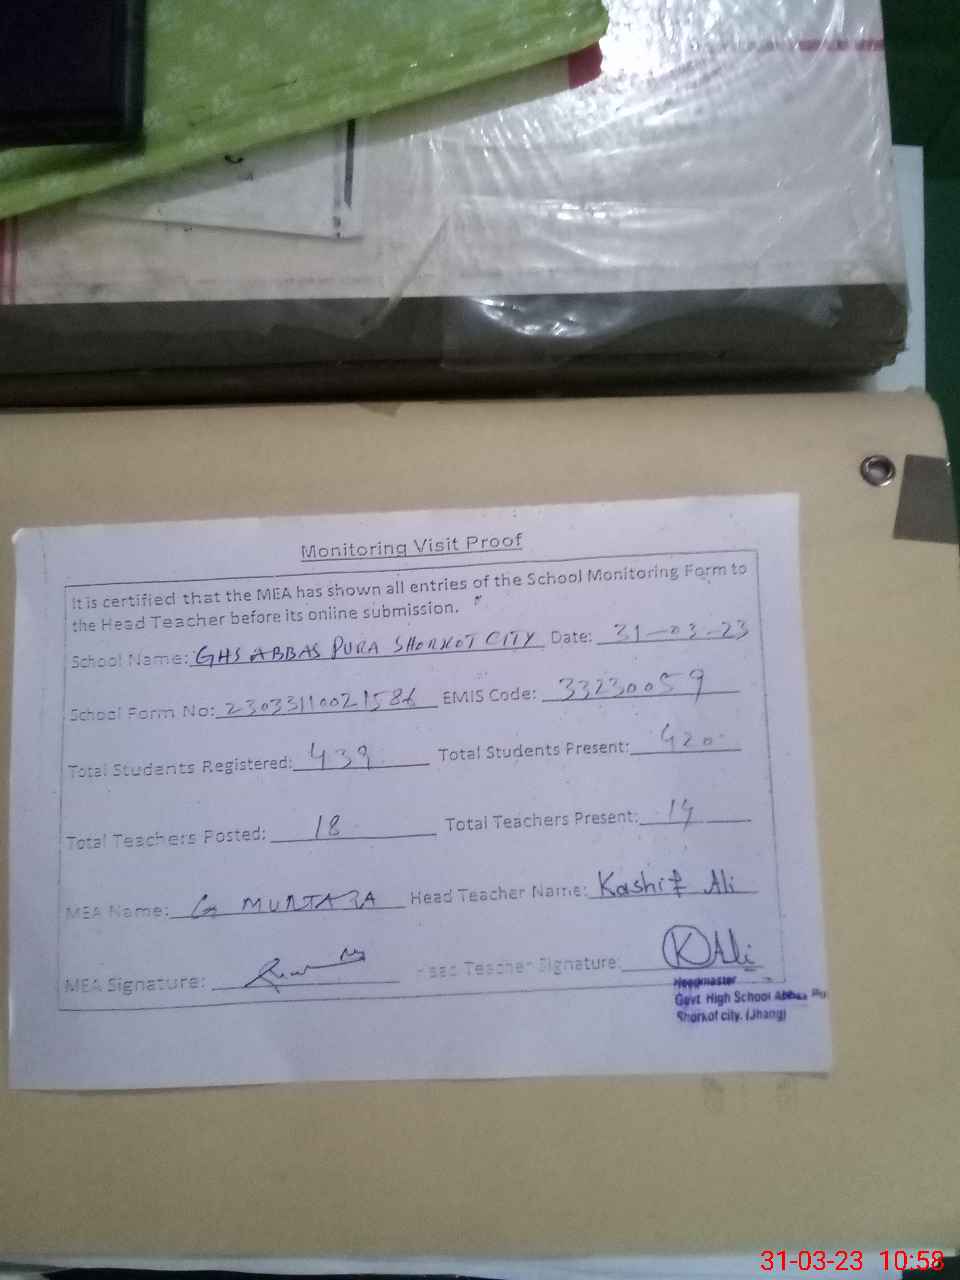 Monitoring Visit Proof
It is certified that the MEA has shown all entries of the School Monitoring Form to
the Head Teacher before its online submission.
School Name: GHS ABBAS PURA SHORKOT CITY Date: 31-03-23
School Form No: 2303311002158 EMIS Code: 33230059
Total Students Registered: 439 Total Students Present: 420
Total Teachers Posted: 18 Total Teachers Present: 14
MEA Name: G MURTAZA Head Teacher Name: Kashif Ali
MEA Signature: Head Teacher Signature: K Ali
Headmaster
Govt. High School Abbas Pu
Shorkot city. (Jhang)
31-03-23 10:58